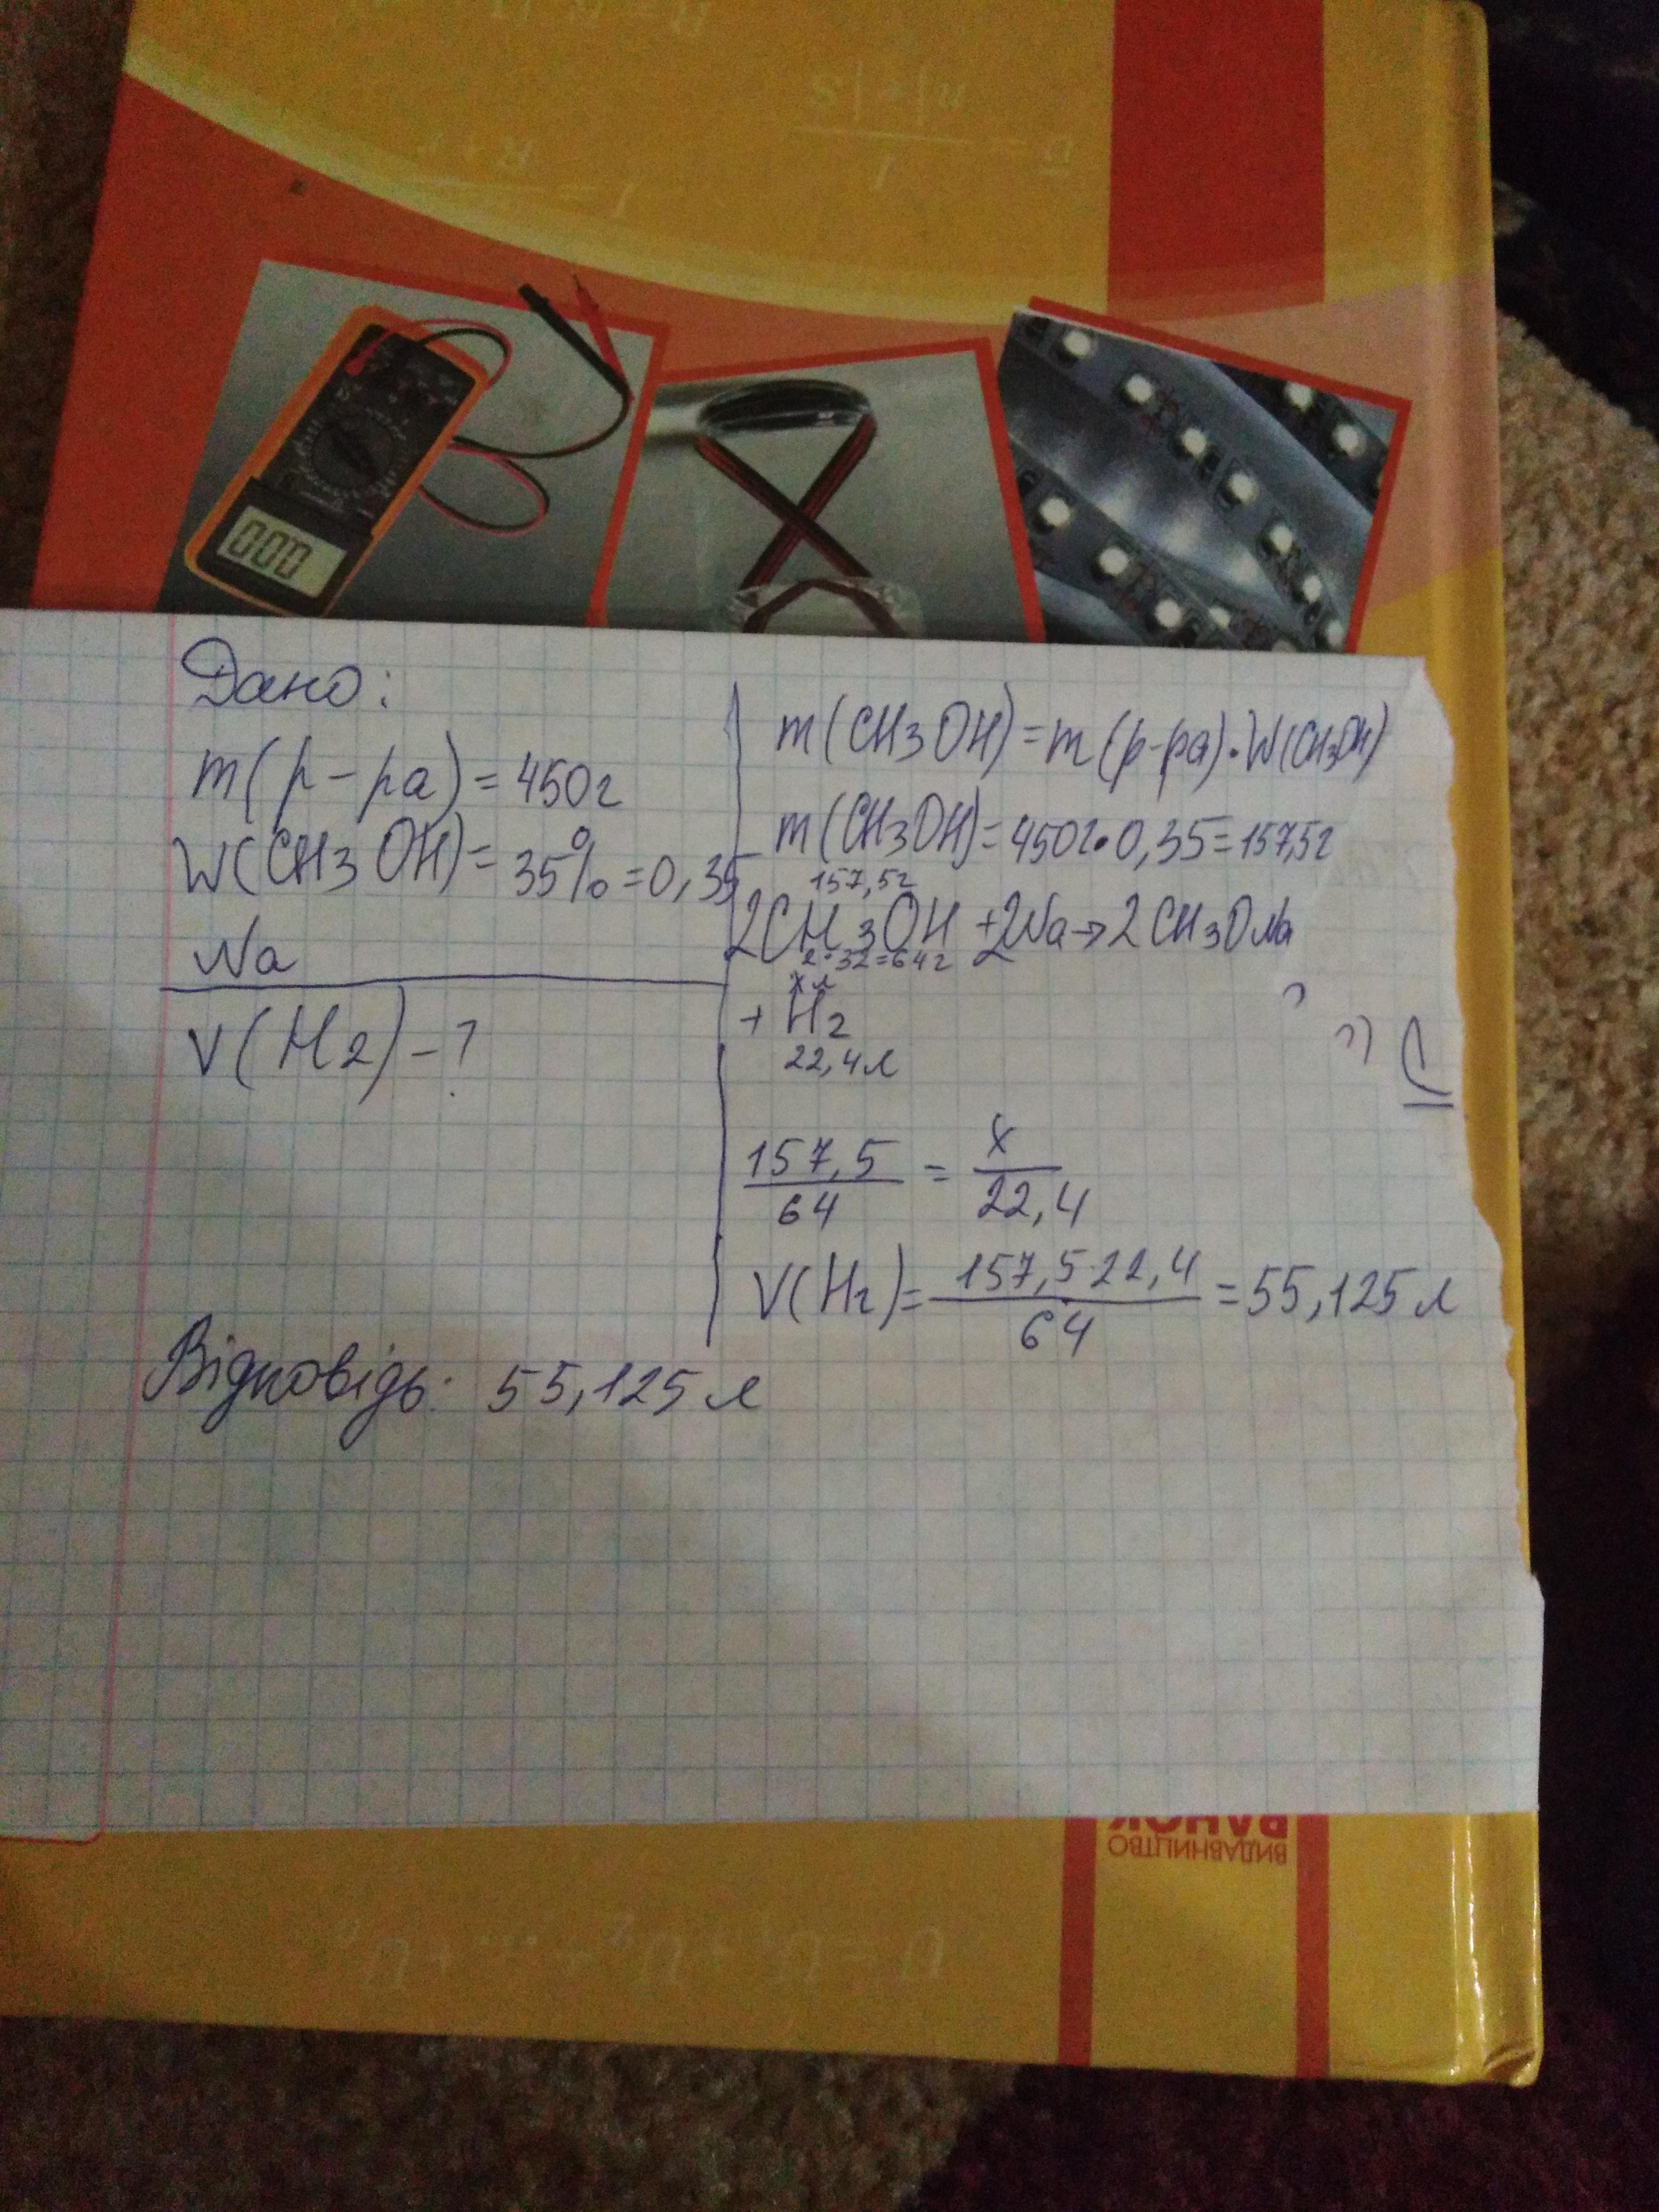 000
Дано:
m(р-ра)=450г
W(CH3OH)=35%=0,35
Na
V(H2)-?
m(CH3OH)=m(р-ра)·W(CH3OH)
m(CH3OH)=450г·0,35=157,5г
157,5г
2CH3OH+2Na→2CH3ONa
2·32=64г
xл
+ H2
22,4л
157,5/64 = x/22,4
V(H2)=157,5·22,4/64=55,125л
Відповідь: 55,125л
ВИДАВНИЦТВО
РАНОК
U=U₁+U₂+...+Uₙ